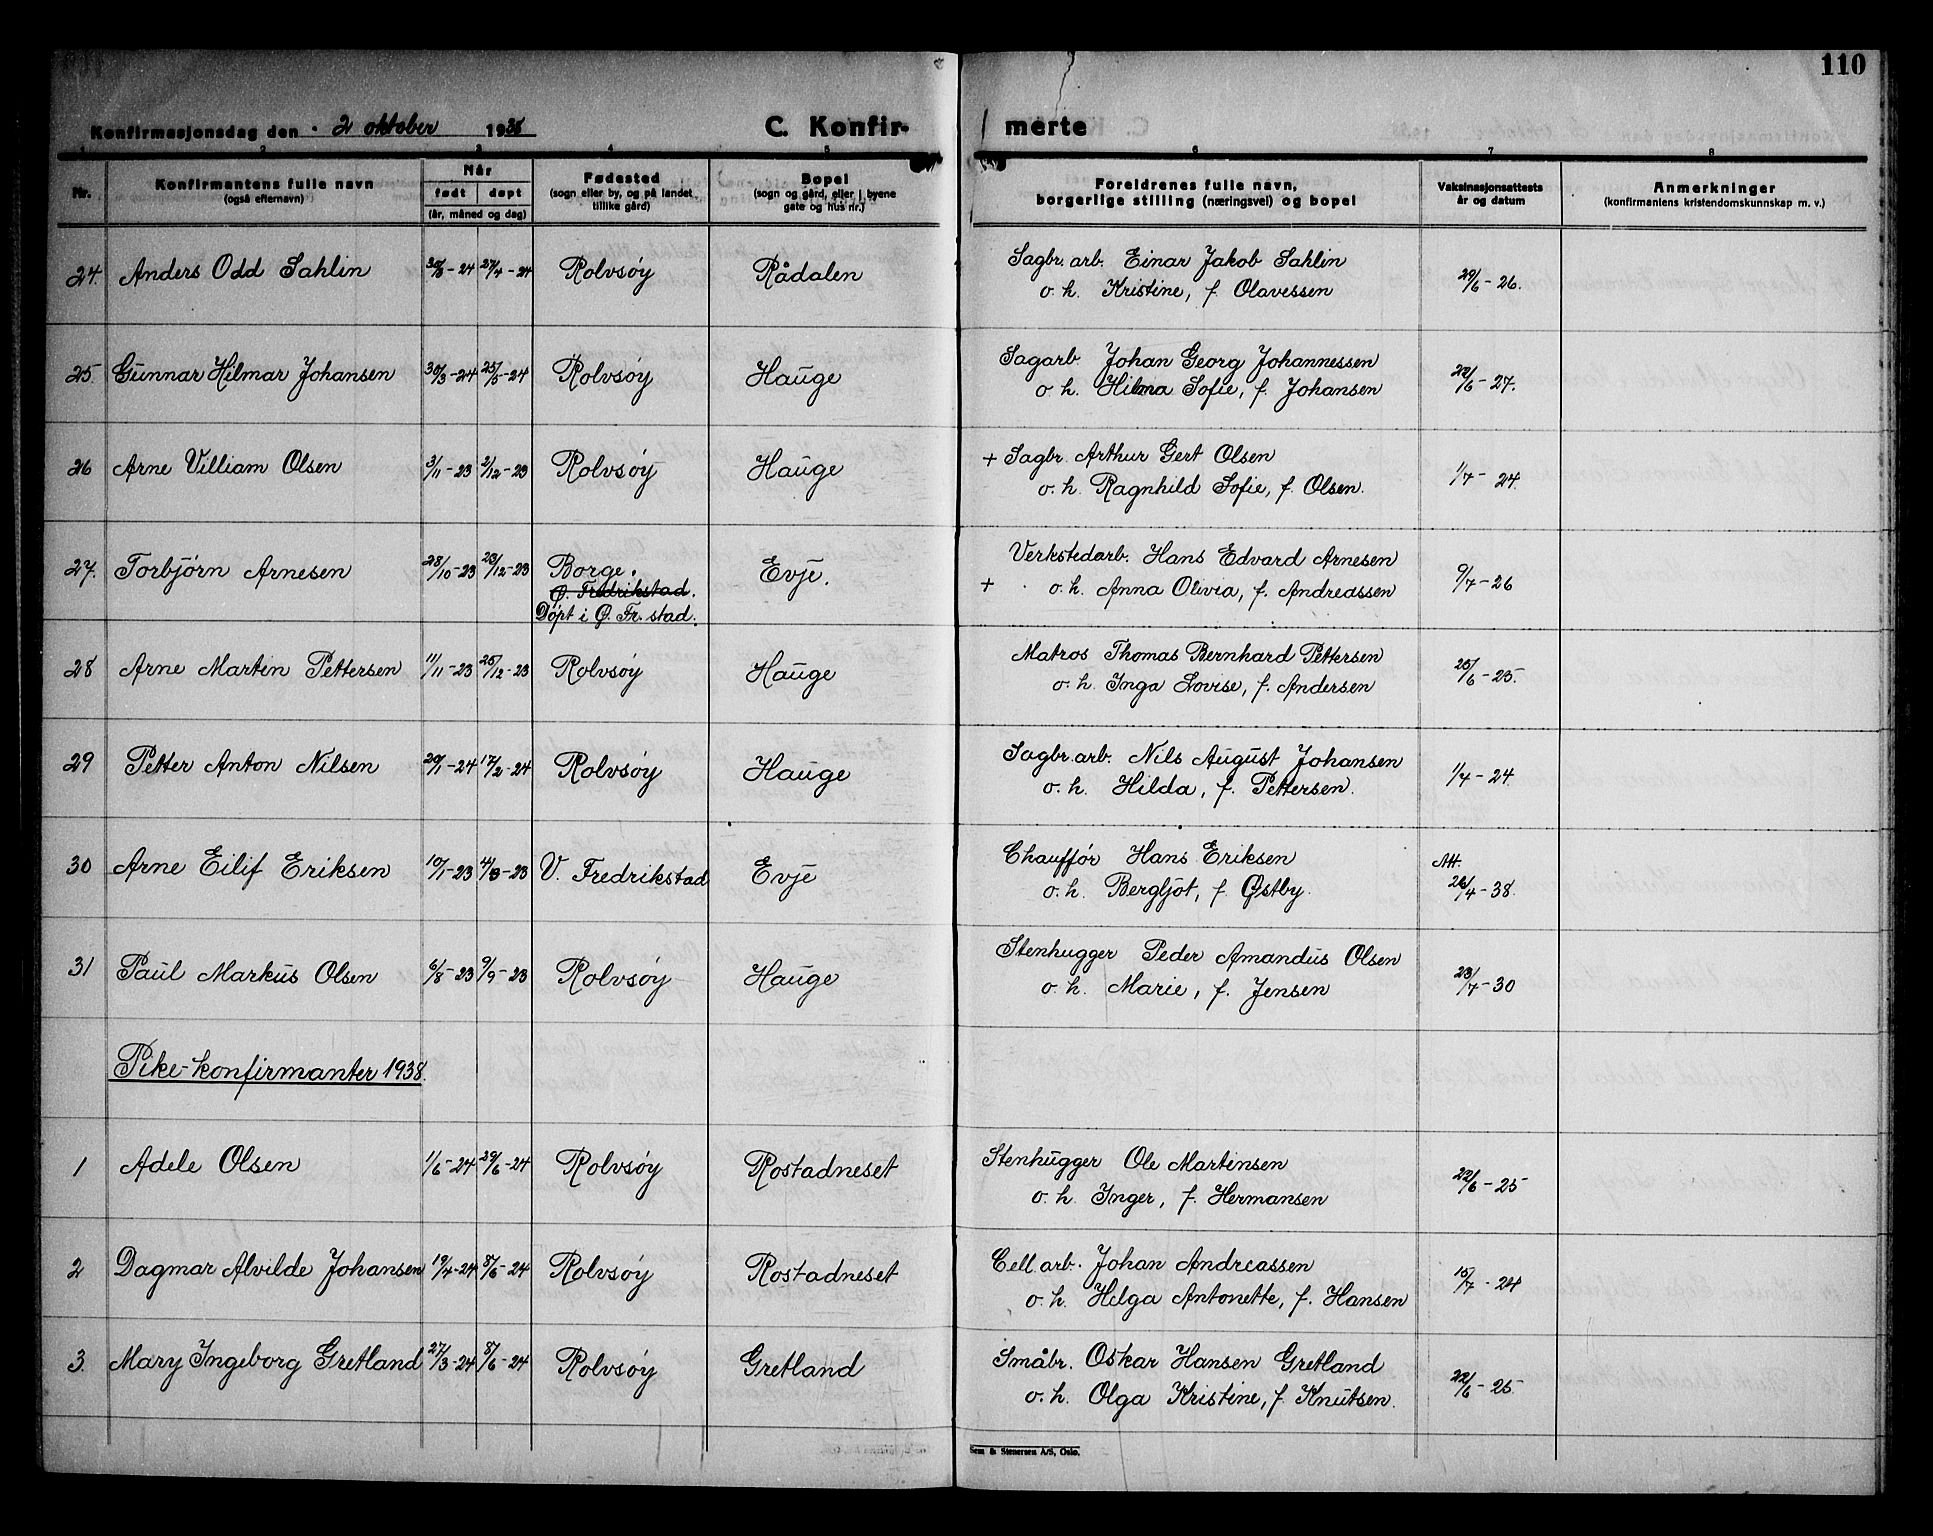 110
Konfirmasjonsdag den 2 oktober 1938
C. Konfir-
merte
1 2 3 4 5 6 7 8
Nr.
Konfirmantens fulle navn
(også efternavn)
Når
født døpt
(år, måned og dag)
Fødested
(sogn eller by, og på landet
tillike gård)
Bopel
(sogn og gård, eller i byene
gate og hus nr.)
Foreldrenes fulle navn,
borgerlige stilling (næringsvei) og bopel
Vaksinasjonsattests
år og datum
Anmerkninger
(konfirmantens kristendomskunnskap m. v.)
24. Anders Odd Sahlin 27/4-24 Rolvsøy Rådalen Sagbr. arb. Einar Jakob Sahlin
o. h. Kristine, f. Olavessen 29/6-26.
25. Gunnar Hilmar Johansen 30/3-24 25/5-24 Rolvsøy Hauge Sagarb. Johan Georg Johannessen
o. h. Hilma Sofie, f. Johansen 22/6-27.
26 Arne Villiam Olsen 3/11-23 2/12-23 Rolvsøy Hauge + Sagbr. Arthur Gert Olsen
o. h. Ragnhild Sofie, f. Olsen. 1/7-24.
27. Torbjørn Arnesen 28/10-23 23/12-23 Borge. Evje. Verkstedarb. Hans Edvard Arnesen
Ø. Fredrikstad.
+ o. h. Anna Olivia, f. Andreassen 9/7-26
Døpt i Ø. Fr. stad.
28 Arne Martin Pettersen 11/11-23 25/12-23 Rolvsøy Hauge Matros Thomas Bernhard Pettersen
o. h. Inga Lovise, f. Andersen 25/6-25.
29 Petter Anton Nilsen 20/1-24 17/2-24 Rolvsøy Hauge Sagbr. arb. Nils August Johansen
o. h. Hilda, f. Pettersen. 1/7-24.
30 Arne Eilif Eriksen 10/1-23 4/3-23 V. Fredrikstad Evje Chauffør Hans Eriksen
o. h. Bergljot, f. Østby. Att.
26/4-38.
31 Paul Markus Olsen 6/8-23 9/9-23 Rolvsøy Hauge Stenhugger Peder Amandus Olsen
o. h. Marie, f. Jensen 23/7-30
Pike-konfirmanter 1938.
1 Adele Olsen 1/6-24 29/6-24 Rolvsøy Rostadneset Stenhugger Ole Martinsen
o. h. Inger, f. Hermansen 22/6-25
2 Dagmar Alvilde Johansen 19/4-24 8/6-24 Rolvsøy Rostadneset Cell arb. Johan Andreassen
o. h. Helga Antonette, f. Hansen 15/7-24
3. Mary Ingeborg Gretland 27/3-24 8/6-24 Rolvsøy Gretland Småbr. Oskar Hansen Gretland
o. h. Olga Kristine, f. Knutsen. 22/6-25
Sem & Stenersen A/S, Oslo.